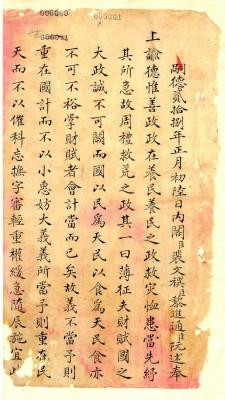 000000
000001
000001
嗣德貳拾捌年正月初陸日内閣臣裴文禩臣黎進通臣阮述奉
上諭德惟善政政在養民養民之政救灾恤患當先紓
其所急故周禮救荒之政其一曰薄征夫財賦國之
大政誠不可闕而國以民為天民以食為天民食亦
不可不裕掌財賦者會計當而已矣故義不當予則
重在國計而不以小惠妨大義義所當予則重在民
天而不以催科忘撫字審輕重權緩急隨辰施宜